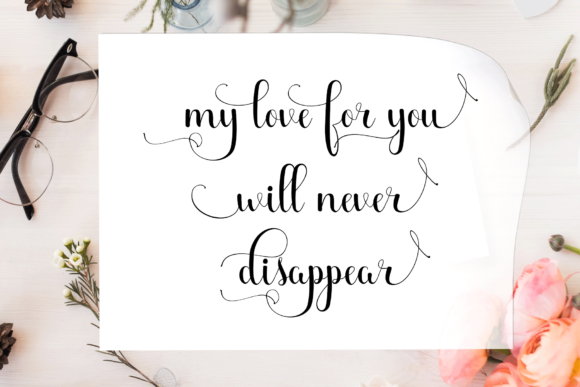 my love for you
will never
disappear